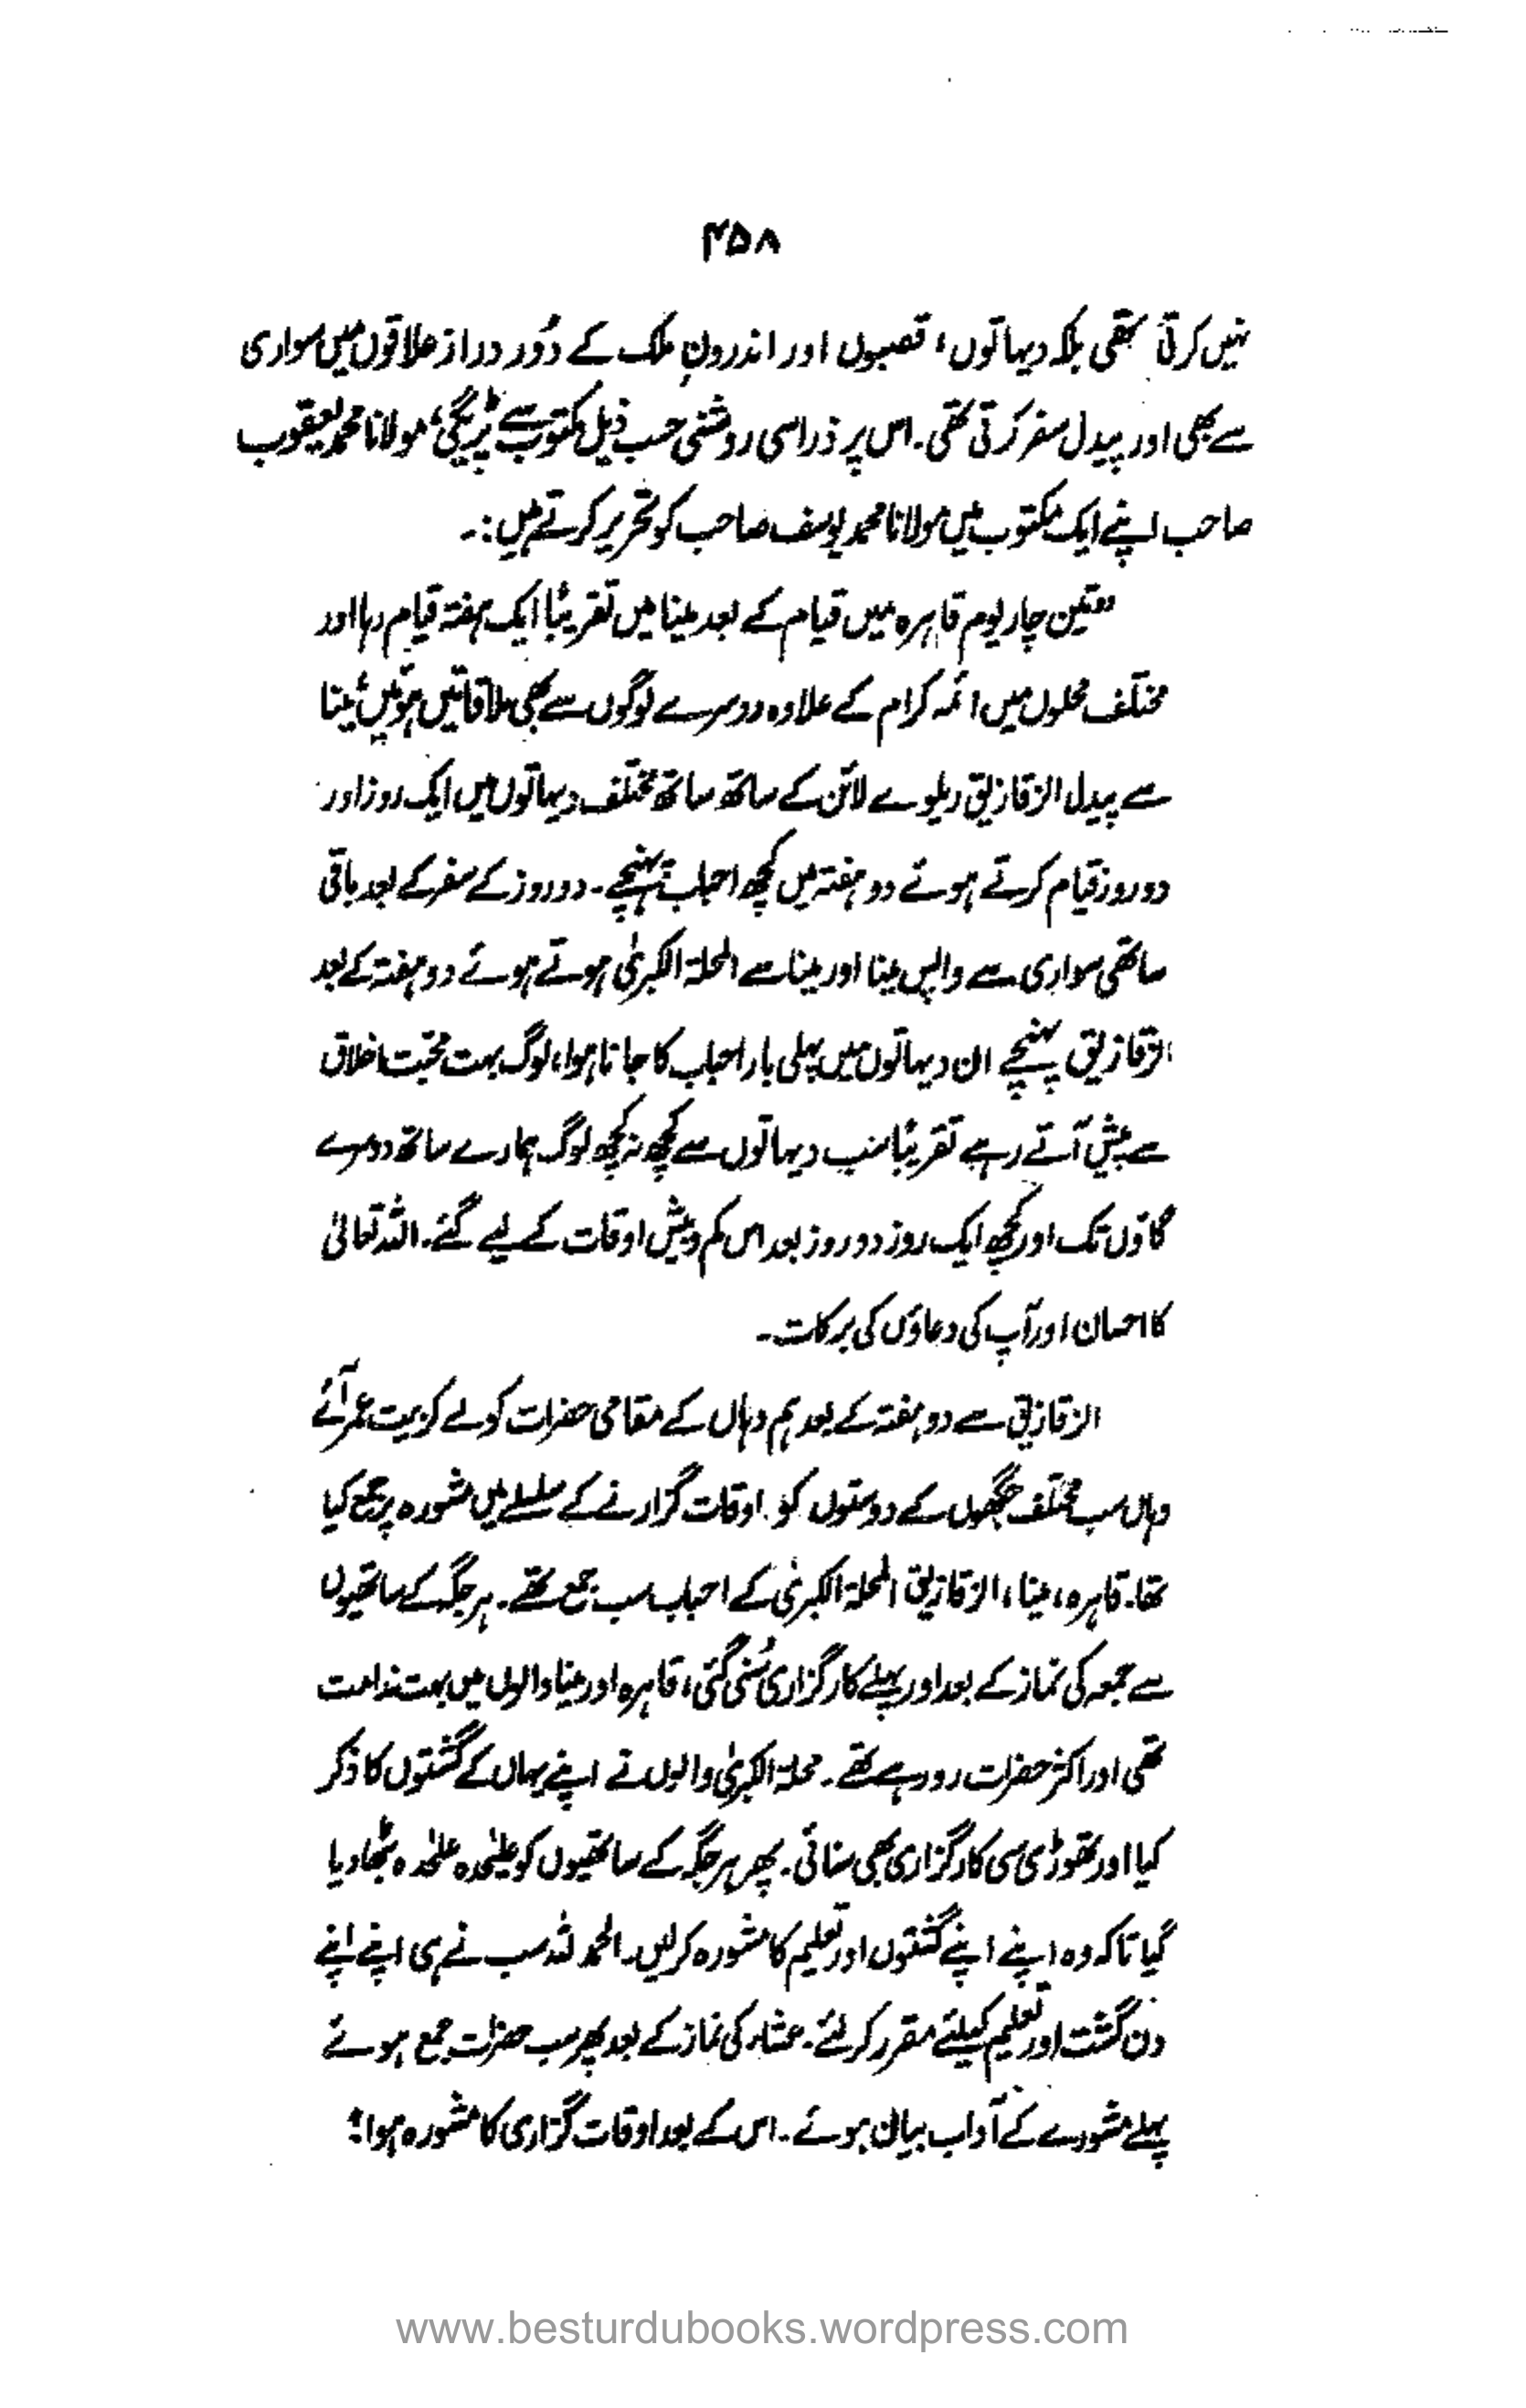 ۴۵۸
نہیں کرتی تھی بلکہ دیہاتوں، قصبوں اور اندرونِ ملک کے دُور دراز علاقوں میں سواری
سے بھی اور پیدل سفر کرتی تھی۔ اس پر ذراسی روشنی حسب ذیل مکتوب سے پڑیگی، مولانا محمد یعقوب
صاحب اپنے ایک مکتوب میں مولانا محمد یوسف صاحب کو تحریر کرتے ہیں:۔
"تین چار یوم قاہرہ میں قیام کے بعد مینا میں تقریبًا ایک ہفتہ قیام رہا اور
مختلف محلوں میں ائمہ کرام کے علاوہ دوسرے لوگوں سے بھی ملاقاتیں ہوئیں، مینا
سے پیدل الزقازیق ریلوے لائن کے ساتھ ساتھ مختلف دیہاتوں میں ایک روز اور
دو روز قیام کرتے ہوئے دو ہفتہ میں کچھ احباب پہنچے۔ دو روز کے سفر کے بعد باقی
ساتھی سواری سے واپس مینا اور مینا سے المحلۃ الکبریٰ ہوتے ہوئے دو ہفتہ کے بعد
الزقازیق پہنچے ان دیہاتوں میں پہلی بار احباب کا جانا ہوا، لوگ بہت محبّت اخلاق
سے پیش آتے رہے تقریبًا سب دیہاتوں سے کچھ نہ کچھ لوگ ہمارے ساتھ دوسرے
گاؤں تک اور کچھ ایک روز دو روز بعد اس کم و بیش اوقات کے لیے گئے۔ اللہ تعالیٰ
کا احسان اور آپ کی دعاؤں کی برکات۔
الزقازیق سے دو ہفتہ کے بعد ہم وہاں کے مقامی حضرات کو لے کر بیت عمر آئے
وہاں سب مختلف جگہوں کے دوستوں کو اوقات گزارنے کے سلسلے میں مشورہ پر جمع کیا
تھا۔ قاہرہ، مینا، الزقازیق المحلۃ الکبریٰ کے احباب سب جمع تھے۔ ہر جگہ کے ساتھیوں
سے جمعہ کی نماز کے بعد اور پہلے کارگزاری سُنی گئی، قاہرہ اور مینا والوں میں بہت ندامت
تھی اور اکثر حضرات رو رہے تھے۔ محلۃ الکبریٰ والوں نے اپنے یہاں کے گشتوں کا ذکر
کیا اور تھوڑی سی کارگزاری بھی سنائی۔ پھر ہر جگہ کے ساتھیوں کو علیٰحدہ علیٰحدہ بٹھا دیا
گیا تاکہ وہ اپنے اپنے گشتوں اور تعلیم کا مشورہ کرلیں۔ الحمد للہ سب نے ہی اپنے اپنے
دن گشت اور تعلیم کیلئے مقرر کر لئے۔ عشاء کی نماز کے بعد پھر سب حضرات جمع ہوئے
پہلے مشورے کے آداب بیان ہوئے۔ اس کے بعد اوقات گزاری کا مشورہ ہوا؛
www.besturdubooks.wordpress.com